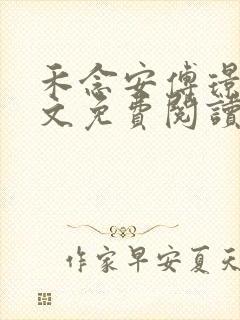 禾念安傅璟
文免費閱讀
作家早安夏天